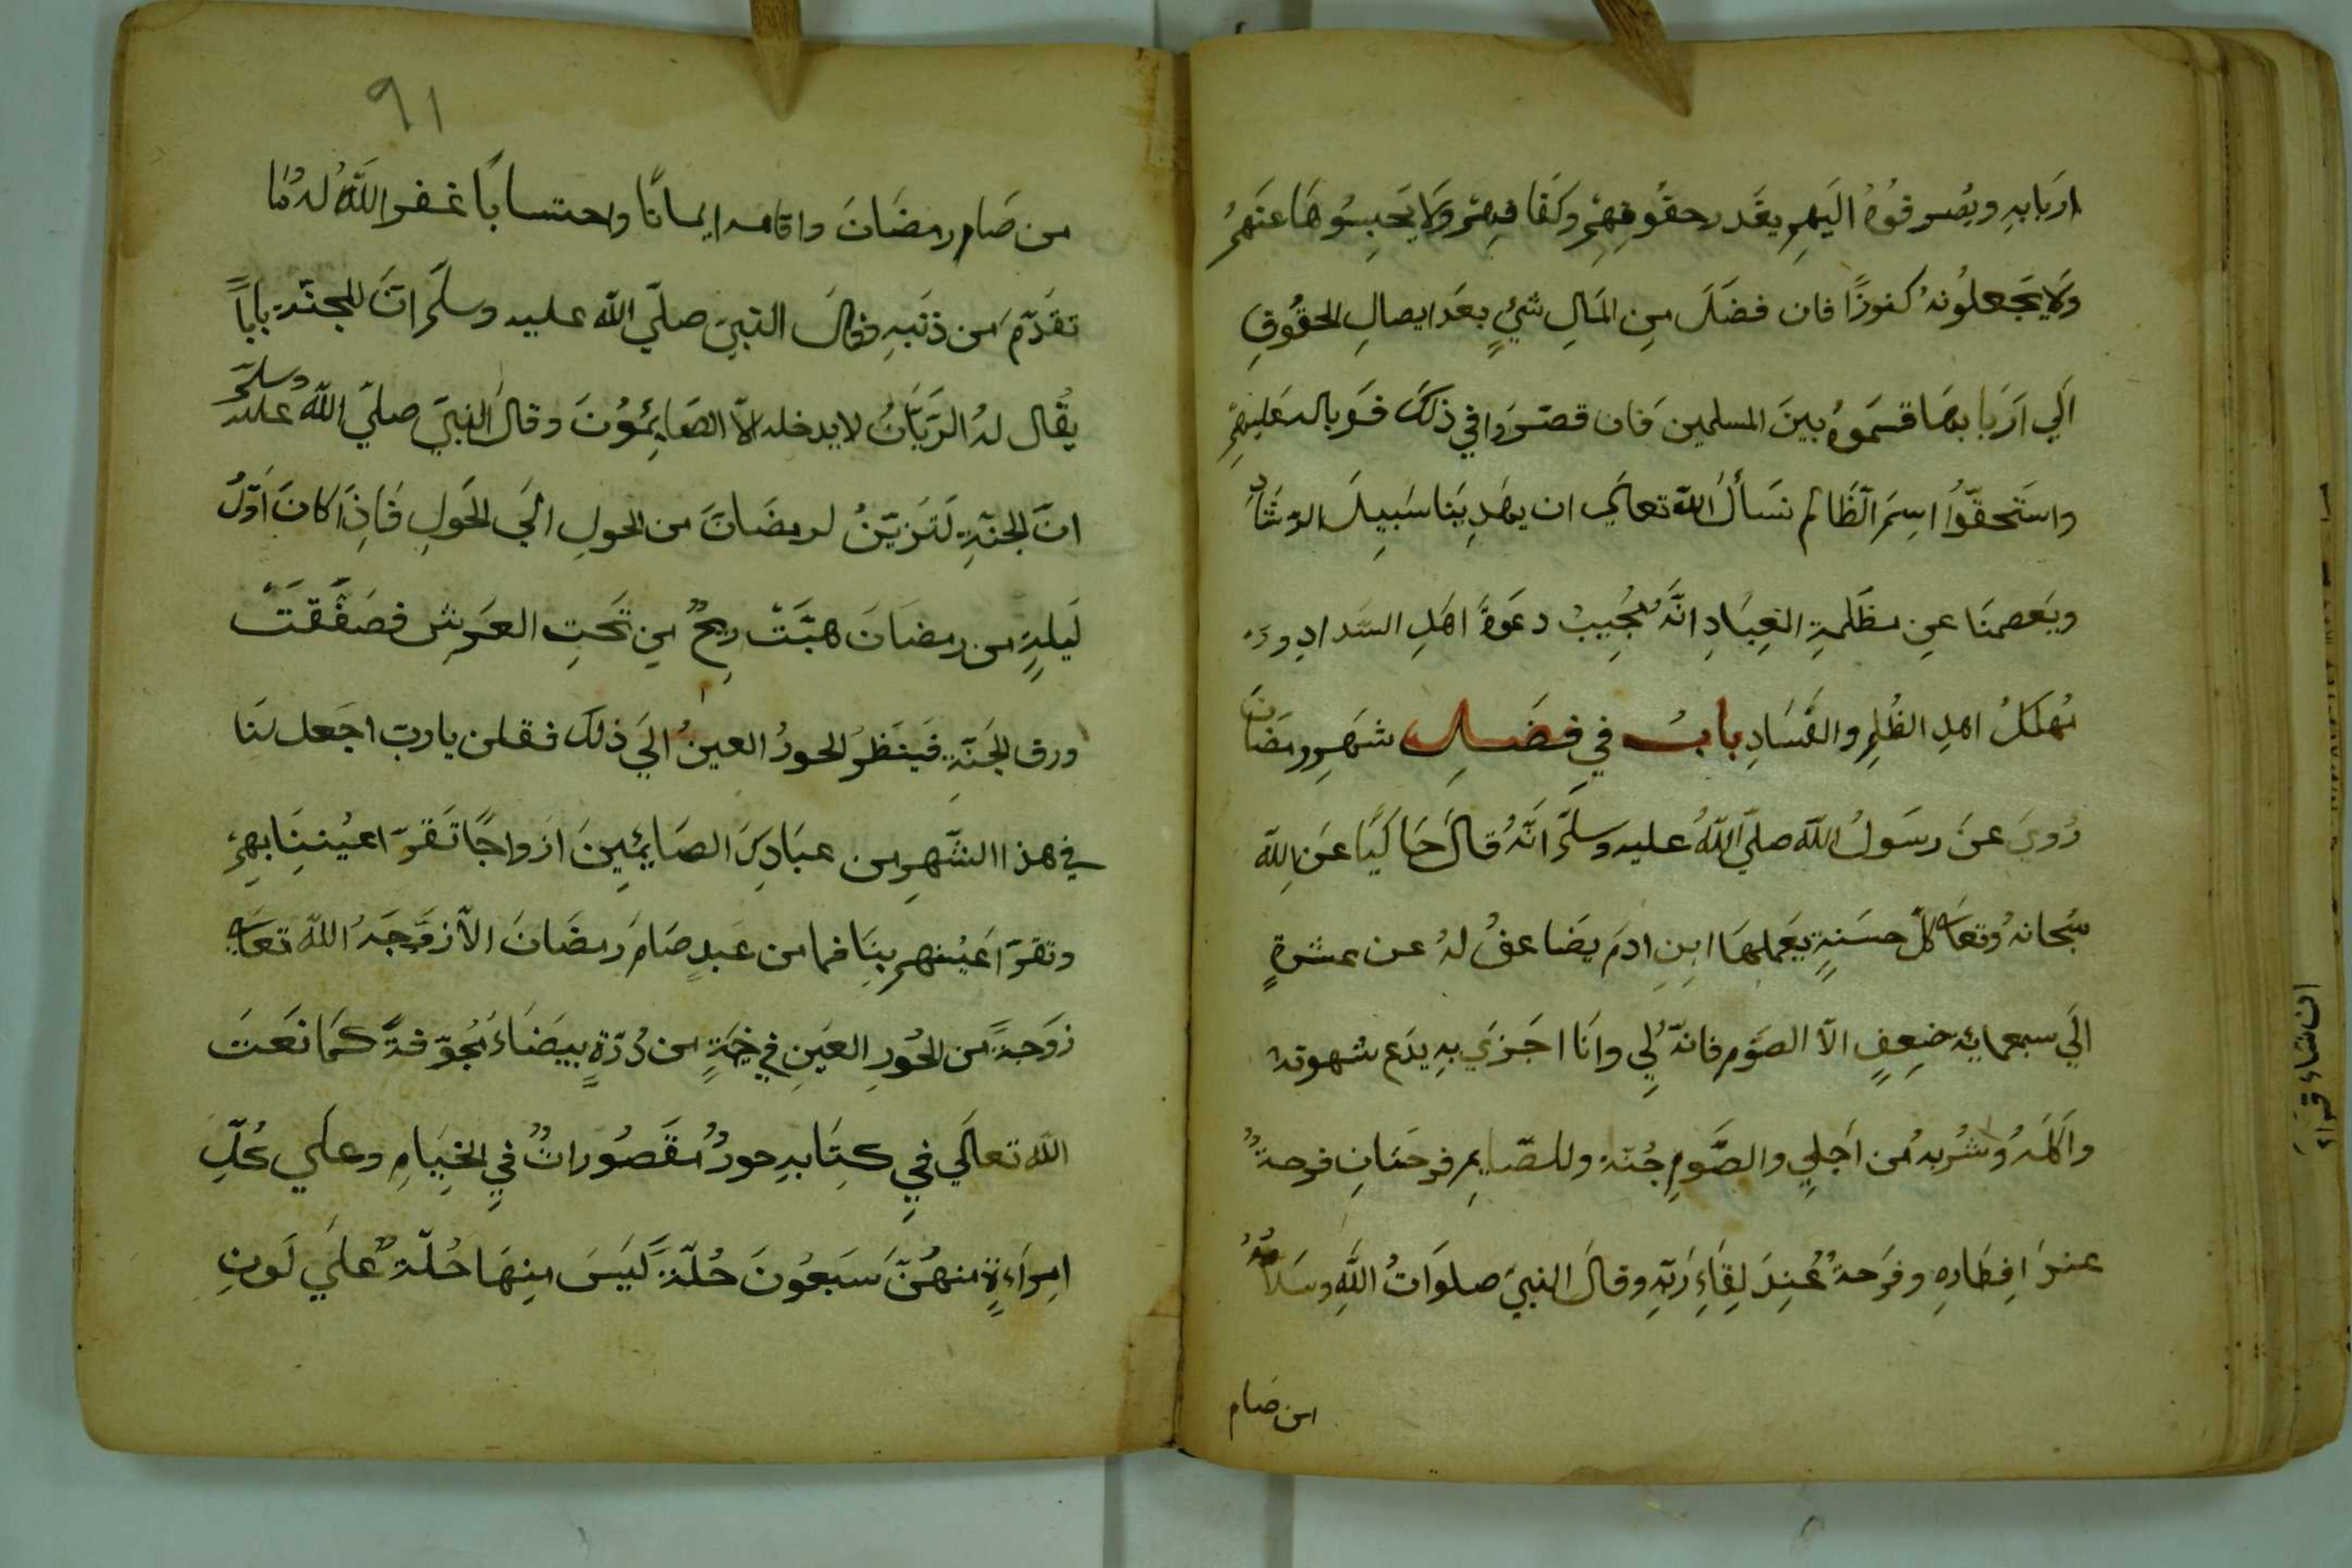 اربابهِ ويُصرفُوهُ اليَهِم بقَدر حقُوقِهِم وكفَافِهِم ولا يَحبِسُوهَا عَنهُم
ولا يجَعلُونهُ كنوزًا فان فضَلَ مِن المَالِ شَيءٍ بعَد ايصالِ الحقُوقِ
الَي اربابهَا قسَمَوهُ بينَ المسلمين فان قصّروا في ذلكَ فوَبالهُ عَليهِم
واستحقّوُا اسِمَ الظَالم نسَألُ اللّه تعالي ان يهَدِينَا سَبِيلَ الرشَادِ
ويَعصمنَا عن مظَلمةِ العِبَادِ انَّهُ مُجِيبُ دعَوةَ اهَلِ السّدادِ و
مُهلكُ اهلِ الظُلمِ والفَسَادِ بابُ في فضَلِ شهَرِ رمضَانَ
رُويَ عنَ رسَولُ اللّه صلّي اللّهُ عليه وسلّمَ انّهُ قالَ حَاكيًا عَن اللّه
سُبحانهُ وتعالي كلّ حسَنةٍ يعَملهَا ابنِ ادمَ يضَاعفُ لهُ عن عشرةٍ
الَي سبعمايَة ضِعِفٍ الاّ الصَوم فانّهُ لِي وانَا اجَزي بهِ يدَع شهوتهُ
واَكلَهُ وُشُربهُ مُن اجَلِي والصَّومِ جُنّة وللصّايمِ فرحَتانِ فرحةٌ
عندَ اِفطَارهِ وفرَحةٌ عُندَ لِقاءِ رَبّهِ وقالَ النبيَ صلوَاتُ اللّهِ وسَلامُهُ
من صَام
٩١
من صَام رمضَانَ واقامه ايمانًا واحتسابًا غفر اللّهُ لهُ مُا
تقَدّمَ مَن ذنَبهِ فقالَ النبيَ صلّي اللّه عليه وسلّمَ انّ للجنّة باباً
يقُال لهُ الرَيّانُ لا يدخله الاّ الصَايئِموُنَ وقالَ النبيَ صلّي اللّهُ عليه وسلّمَ
انّ الجنّةِ لَتَزيّنُ لرمضَانَ من الحولِ الَي الحَولِ فَاذَا كانَ اَوّلُ
لَيلةٍ من رمضَانَ هبَّتَ رِيحٌ مِن تَحتِ العرَش فصَفّقتَ
ورق الجَنّةِ فَينَظرُ الحورُ العينُ الَي ذلكَ فقلن يا رب اجَعل لنَا
في هذا الشّهرِ من عبَادِكَ الصَايئِمِينَ ازَواجًا تَقرّ اعيُننِا بهِم
وتقرّ اَعيُنهم بنَا فما من عَبدٍ صَامَ رمضَانَ الاّ زوّجَهُ اللّه تعالَي
زوَجةً من الحُورِ العَينِ في خيمَةٍ من دُرّةٍ بيضَاءُ مُجوّفةً كمَا نعَتَ
اللّه تعالَي في كتِابهِ حورٌ مُقَصُوراتٌ في الخِيَامِ وعلَي كُلّ
امِراءةٍ منهُنّ سَبعُونَ حُلّةً لَيسَ مِنهَا حُلّةٌ علَي لَونِ